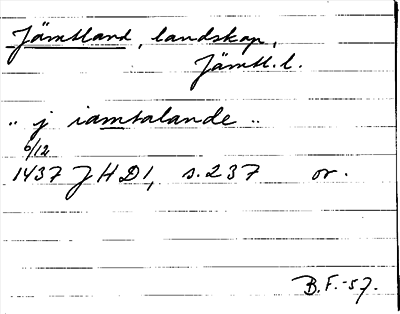 Jämtland, landskap,
Jämtl. l.
„ j iamtalande „
6/12
1437 JHD1, s. 237 or.
B.F.-57.